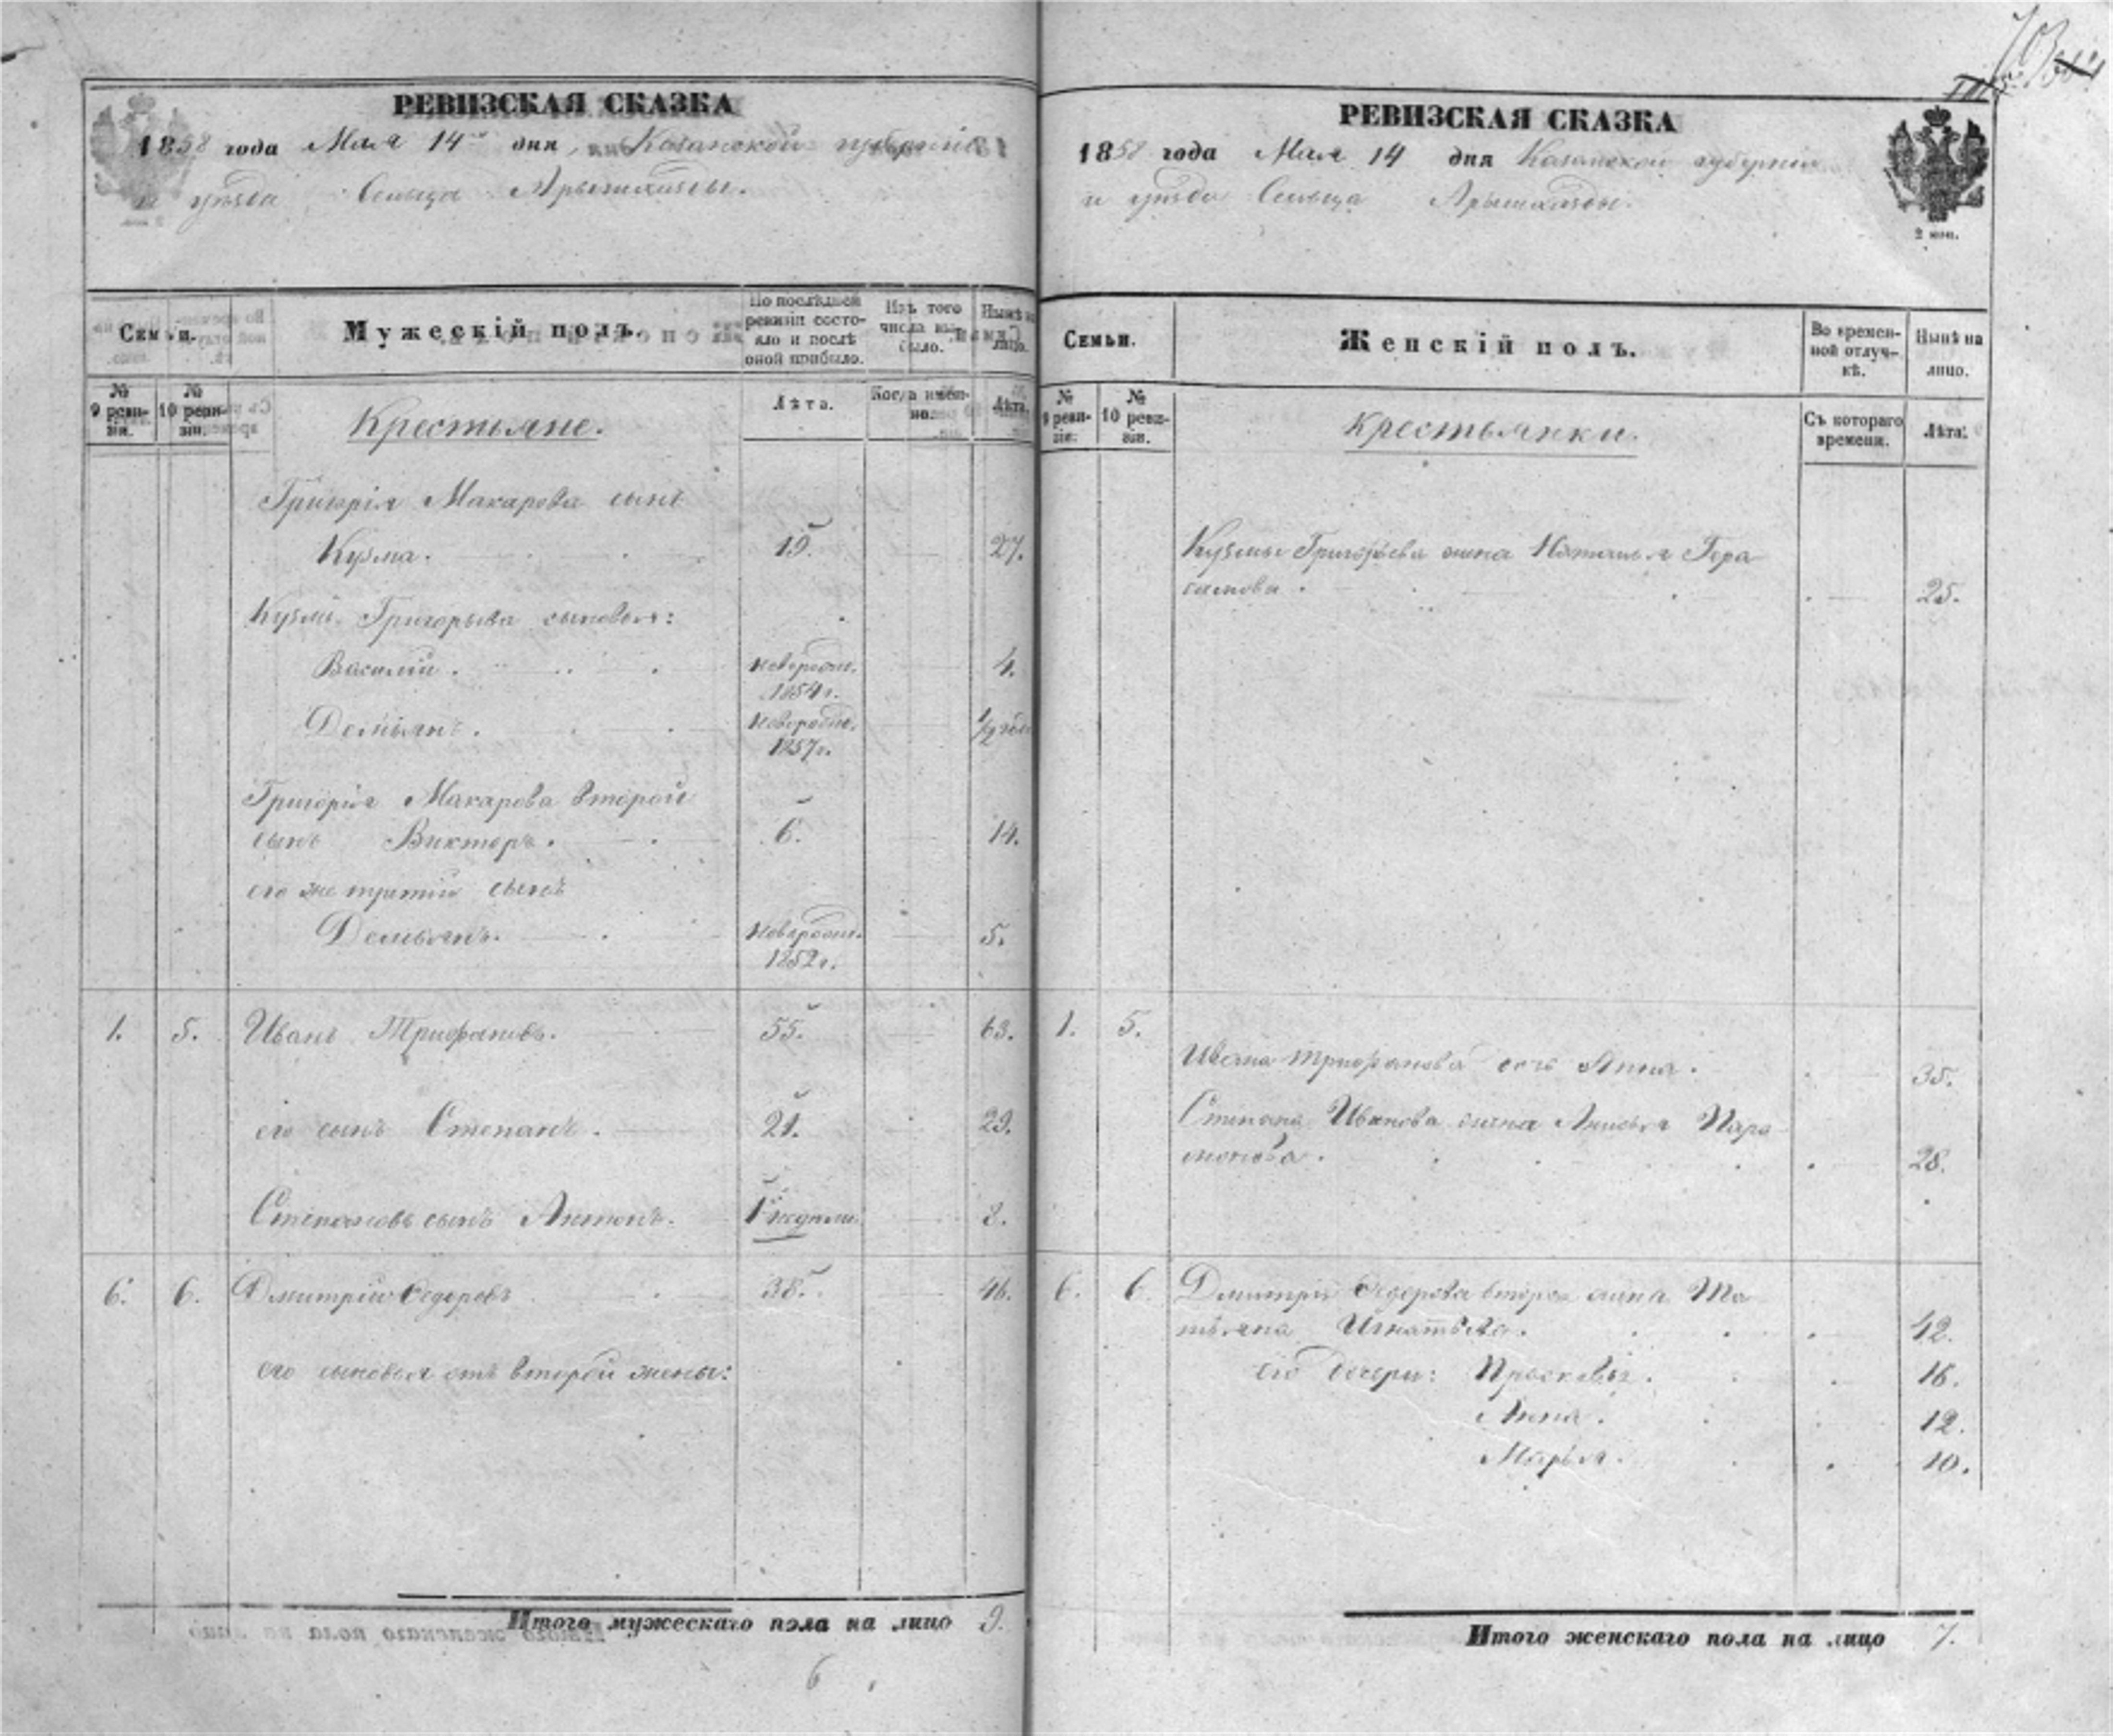 РЕВИЗСКАЯ СКАЗКА
1858 года Мая 14 дня, Казанской губерніи
и уѣзда Сельца Арышхазды.
Семьи.
Мужескій полъ.
По послѣдней ревизіи состояло и послѣ оной прибыло.
Изъ того числа выбыло.
Нынѣ на лицо.
№ 9 ревизіи.
№ 10 ревизіи.
Крестьяне.
Лѣта.
Когда именно.
Лѣта.
Григорія Макарова сынъ
Кузма. 19. 27.
Кузмы Григорьева сыновья:
Василій. новорожд. 4.
1854 г.
Демьянъ. новорожд. 1/2 года
1857 г.
Григорія Макарова второй
сынъ Викторъ. 6. 14.
его же третій сынъ
Демьянъ. новорожд. 5.
1852 г.
1. 5. Иванъ Трифановъ. 55. 63.
его сынъ Степанъ. 21. 29.
Степановъ сынъ Антонъ. 1 недѣли 8.
6. 6. Дмитрій Федоровъ 38. 46.
его сыновья отъ второй жены:
Итого мужескаго пола на лицо 9.
6
РЕВИЗСКАЯ СКАЗКА
1858 года Мая 14 дня Казанской губерніи
и уѣзда Сельца Арышхазды.
2 коп.
Семьи.
Женскій полъ.
Во временной отлучкѣ.
Нынѣ на лицо.
№ 9 ревизіи.
№ 10 ревизіи.
Крестьянки.
Съ котораго времени.
Лѣта.
Кузмы Григорьева жена Наталья Гера
симова. 25.
1. 5.
Ивана Трифанова дочь Анна. 35.
Степана Иванова жена Анисья Пара
монова. 28.
6. 6. Дмитрія Федорова вторая жена Та
тьяна Игнатьева. 42.
его дочери: Прасковья. 16.
Анна. 12.
Марья. 10.
Итого женскаго пола на лицо 7.